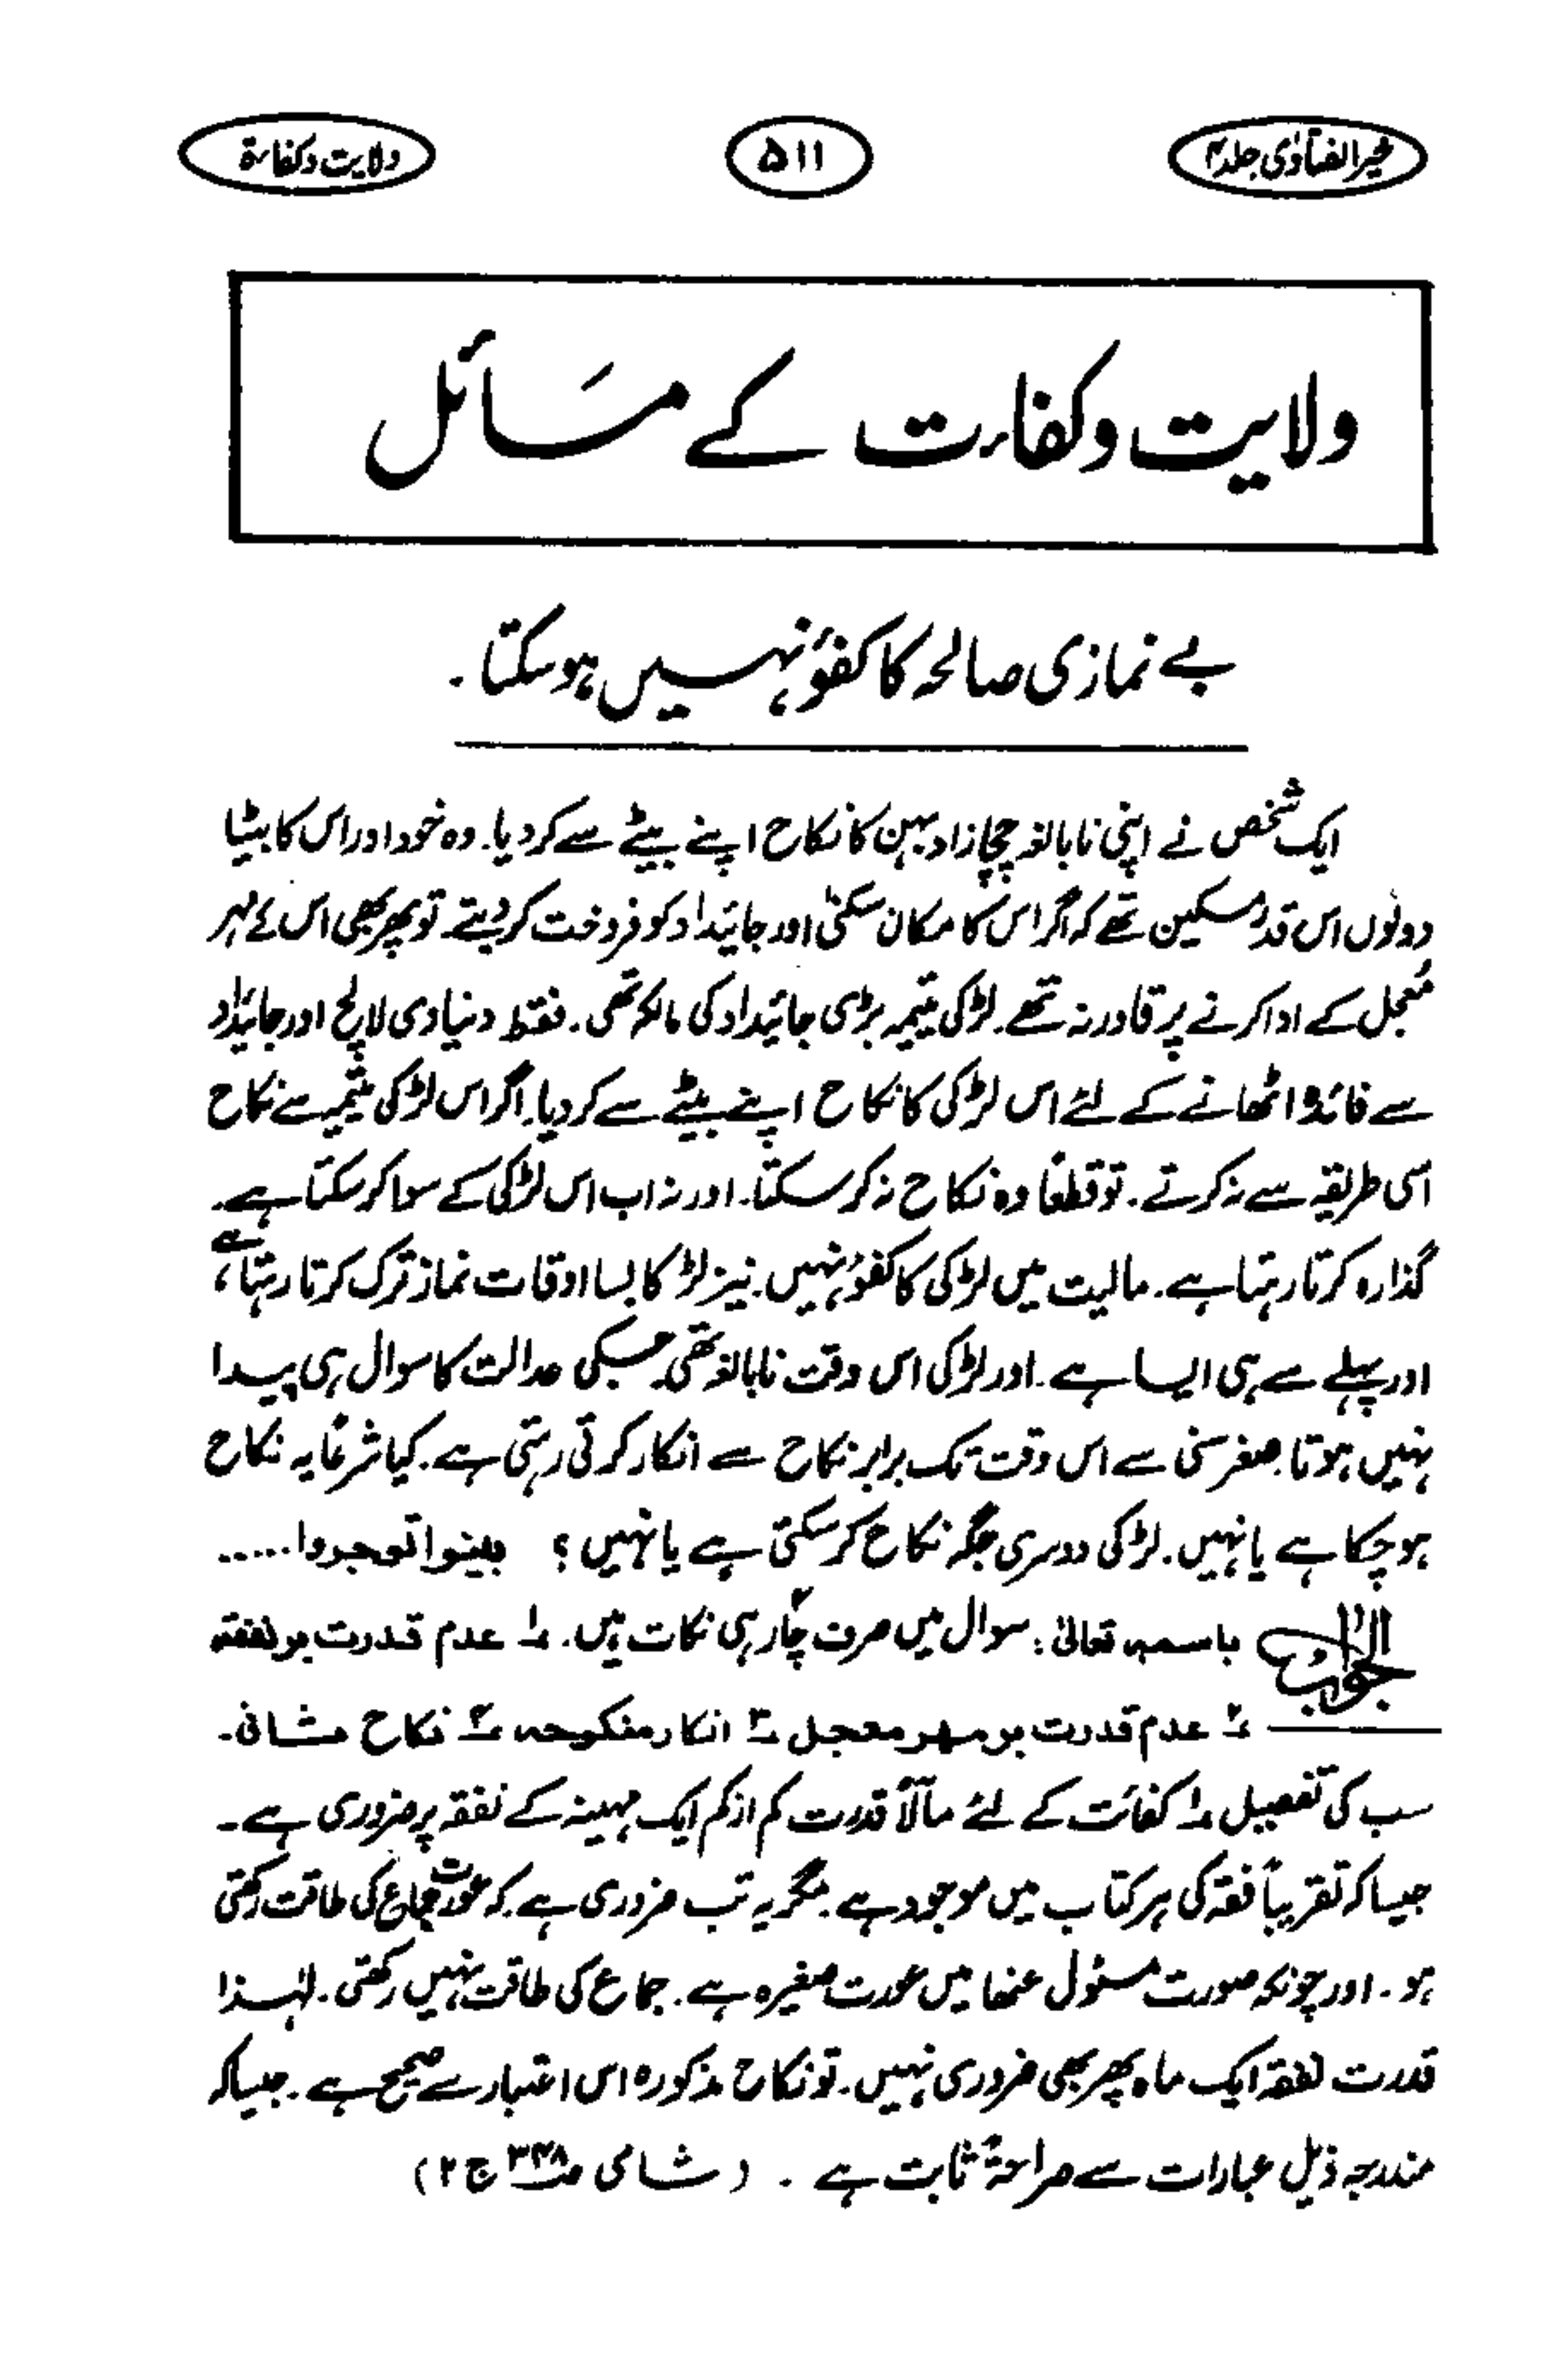 خیر الفتاوی جلد ۴
۵۱۱
ولایت و کفاءة
ولایت و کفاءت کے مسائل
بے نمازی صالحہ کا کفوٴ نہیں ہوسکتا ۔
ایک شخص نے اپنی نابالغہ چچازاد بہن کا نکاح اپنے بیٹے سے کر دیا۔ وہ خود اور اس کا بیٹا
دونوں اس قدر مسکین تھے کہ اگر اس کا مکان سکنیٰ اور جائیداد کو فروخت کر دیتے۔ تو پھر بھی اس کے مہر
معجل کے ادا کرنے پر قادر نہ تھے۔ لڑکی یتیمہ بڑی جائیداد کی مالکہ تھی۔ فقط دنیاوی لالچ اور جائیداد
سے فائدہ اٹھانے کے لئے اس لڑکی کا نکاح اپنے بیٹے سے کر دیا۔ اگر اس لڑکی یتیمہ سے نکاح
اسی طریقہ سے نہ کرتے۔ تو قطعاً وہ نکاح نہ کر سکتا۔ اور نہ اب اس لڑکی کے سوا کر سکتا ہے۔
گذارہ کرتا رہتا ہے۔ مالیت میں لڑکی کا کفوٴ نہیں۔ نیز لڑکا بسا اوقات نماز ترک کرتا رہتا ہے،
اور پہلے سے ہی ایسا ہے۔ اور لڑکی اس وقت نابالغہ تھی۔ جسکی عدالت کا سوال ہی پیدا
نہیں ہوتا۔ صغر سنی سے اس وقت تک برابر نکاح سے انکار کرتی رہتی ہے۔ کیا شرعاً یہ نکاح
ہو چکا ہے یا نہیں۔ لڑکی دوسری جگہ نکاح کر سکتی ہے یا نہیں؟ بینوا توجروا.....
الجواب باسمہ تعالیٰ: سوال میں صرف چار ہی نکات ہیں۔ ۱؎ عدم قدرت بر نفقہ
۲؎ عدم قدرت بر مہر معجل ۳؎ انکار منکوحہ ۴؎ نکاح مشافی۔
سب کی تفصیل ۱؎ کفائت کے لئے مآلاً قدرت کم از کم ایک مہینہ کے نفقہ پر ضروری ہے۔
جیسا کہ تقریباً فقہ کی ہر کتاب میں موجود ہے۔ مگر یہ تب ضروری ہے۔ کہ عورت جماع کی طاقت رکھتی
ہو۔ اور چونکہ صورت مسئول عنھا میں عورت صغیرہ ہے۔ جماع کی طاقت نہیں رکھتی۔ لہٰذا
قدرت نفقہ ایک ماہ پھر بھی ضروری نہیں۔ تو نکاح مذکورہ اس اعتبار سے صحیح ہے۔ جیسا کہ
مندرجہ ذیل عبارات سے صراحۃً ثابت ہے۔ (شامی ص۳۴۸ ج۲)